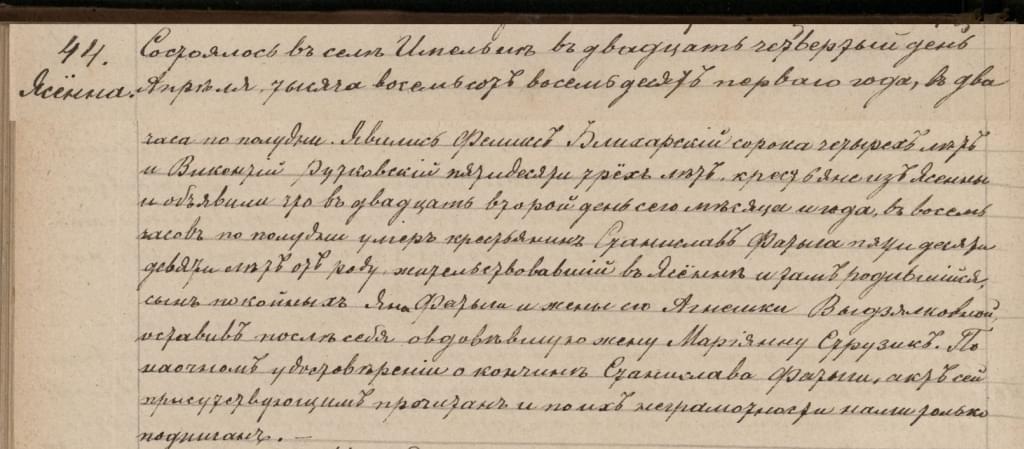 44. Состоялось въ селѣ Имельнѣ въ двадцать четвертый день
Ясённа. Апрѣля тысяча восемьсотъ восемьдесятъ перваго года, въ два
часа по полудни. Явились Феликсъ Блихарскій сорока четырехъ лѣтъ
и Викентій Рутковскій пятидесяти трёхъ лѣтъ, крестьяне изъ Ясенны
и объявили что въ двадцать второй день сего мѣсяца и года, въ восемь
часовъ по полудни умеръ крестьянинъ Станиславъ Фатыга пятидесяти
девяти лѣтъ отъ роду жительствовавшій въ Ясённѣ и тамъ родившійся,
сынъ покойныхъ Яна Фатыги и жены его Агнешки
оставивъ послѣ себя овдовѣвшую жену Маріянну Струзикъ. По
наочномъ удостовѣреніи о кончинѣ Станислава Фатыги, актъ сей
присутствующимъ прочитанъ и по ихъ неграмотности нами только
подписанъ. —